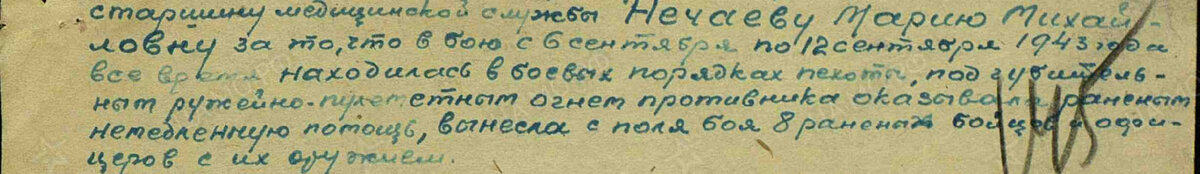 старшину медицинской службы Нечаеву Марию Михай-
ловну за то, что в бою с 6 сентября по 12 сентября 1943 года
все время находилась в боевых порядках пехоты, под губитель-
ным ружейно-пулеметным огнем противника оказывала раненым
немедленную помощь, вынесла с поля боя 8 раненых бойцов и офи-
церов с их оружием.